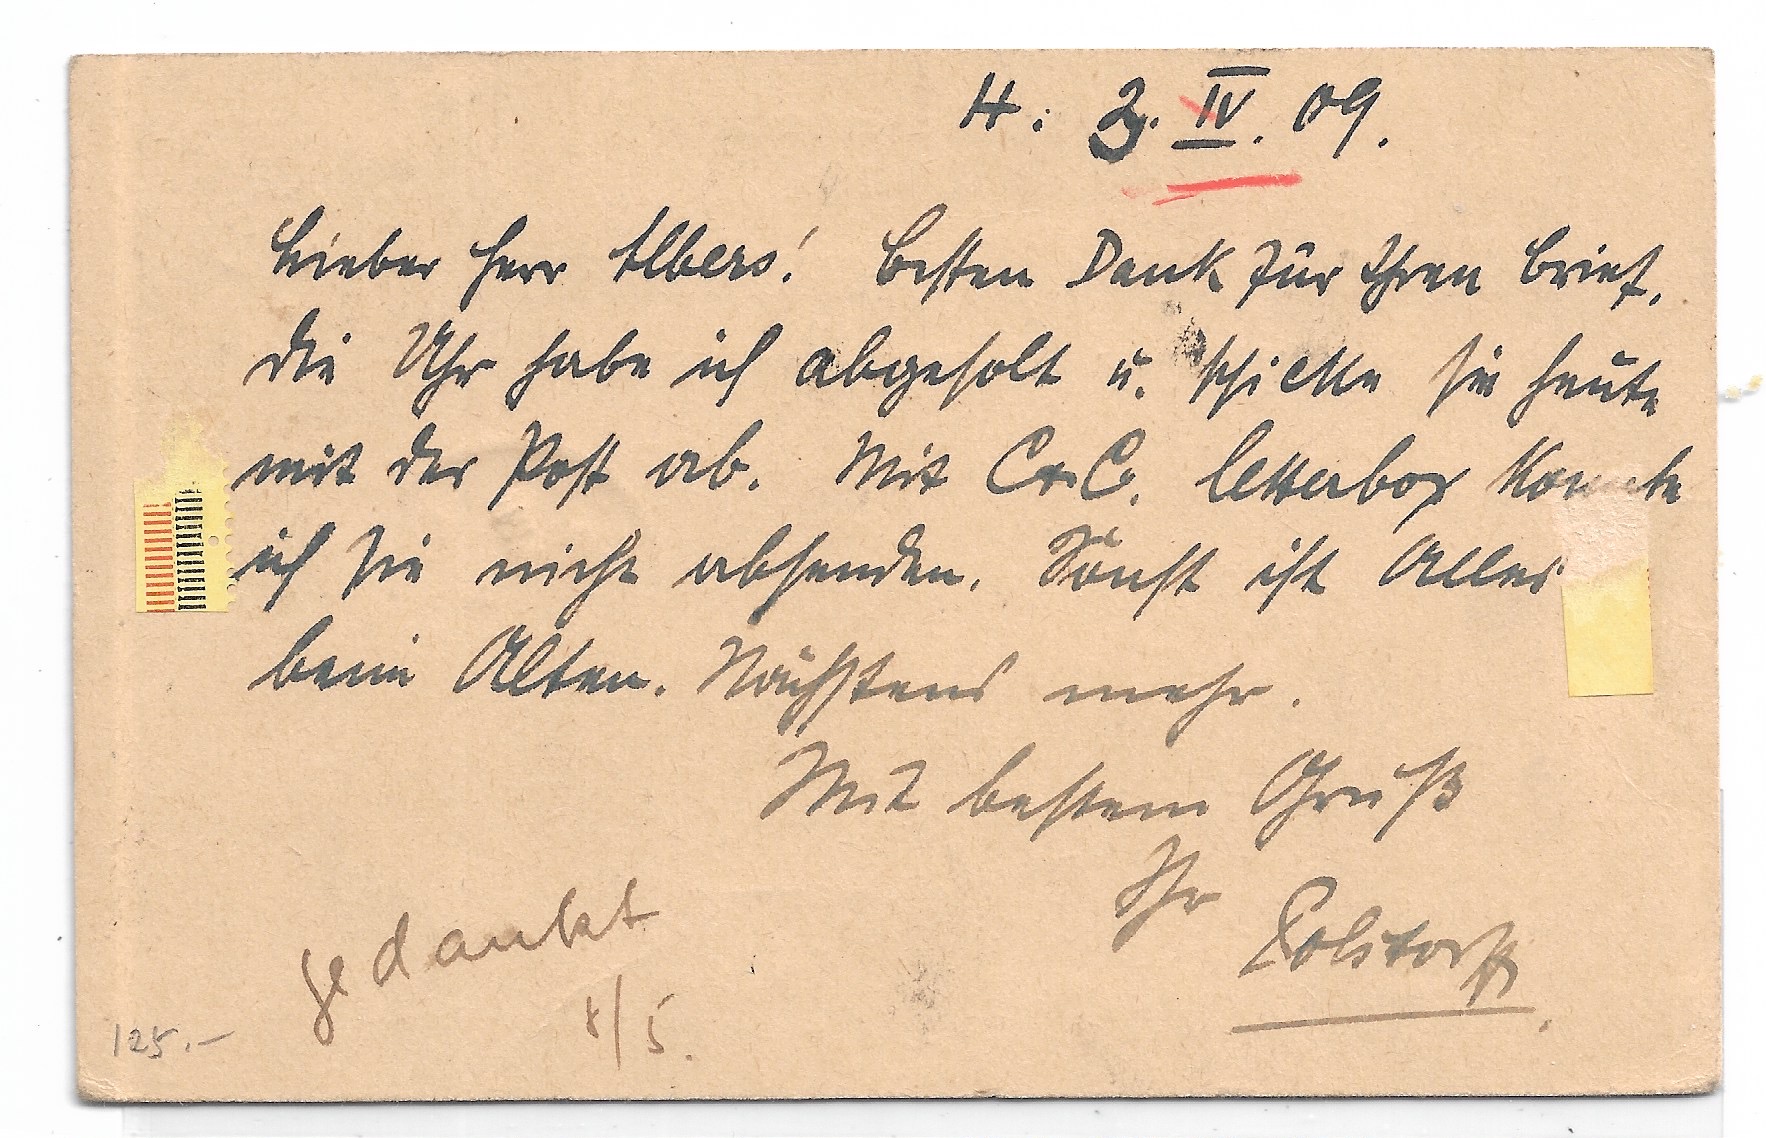 H. 3. IV. 09.
Lieber Herr Albers! Besten Dank für Ihren Brief,
die Uhr habe ich abgeholt u. schicke sie heute
mit der Post ab. Mit C&C. letterbox konnte
ich sie nicht absenden. Sonst ist Alles
beim Alten. Nächstens mehr.
Mit bestem Gruß
Ihr
gedankt
8/5.
125.-